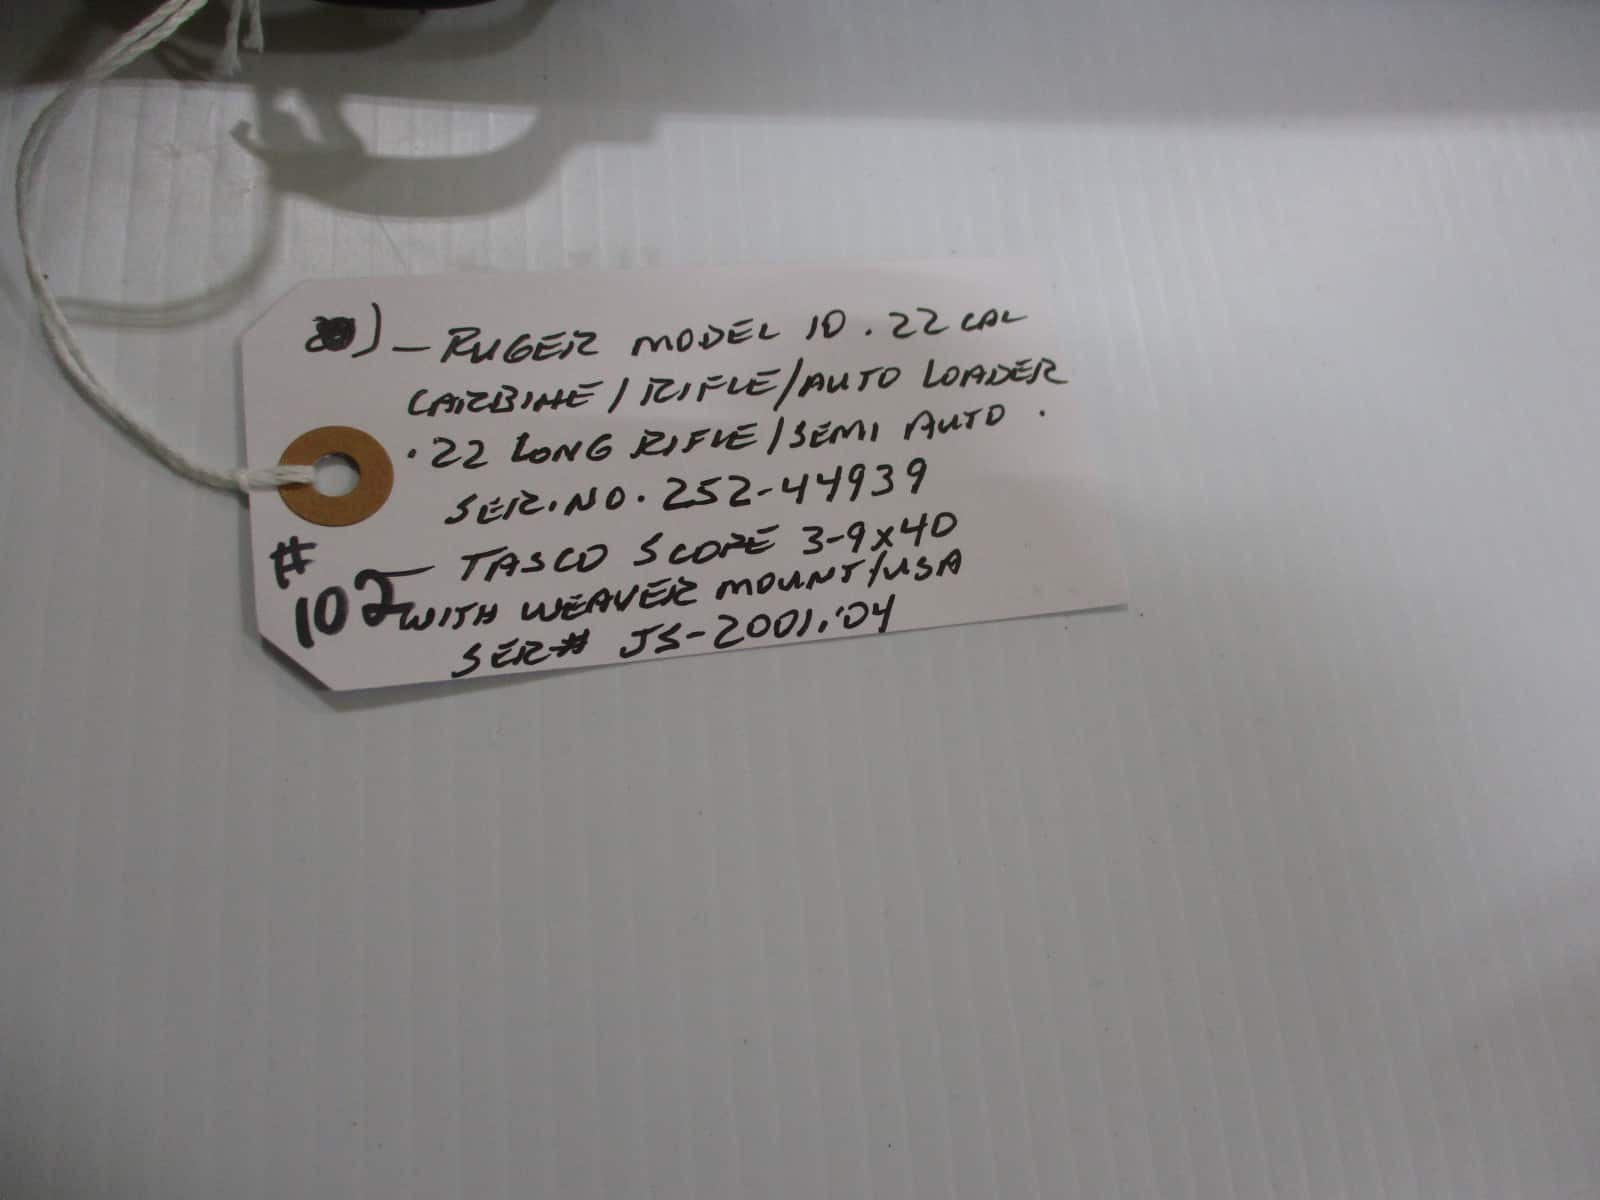 ) - RUGER MODEL 10 .22 CAL
CARBINE / RIFLE/AUTO LOADER
.22 LONG RIFLE/SEMI AUTO.
SER.NO. 252-44939
- TASCO SCOPE 3-9x40
WITH WEAVER MOUNT/USA
SER# JS-2001.'04
#
102